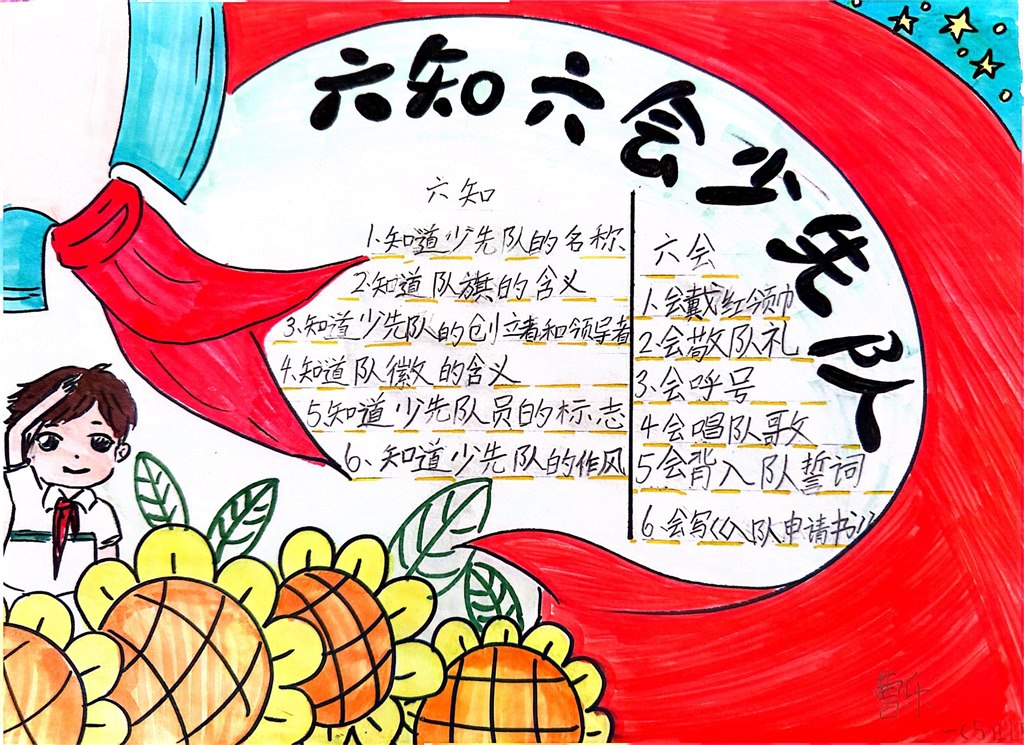 六知六会少先队
六知
1.知道少先队的名称.
2.知道队旗的含义
3.知道少先队的创立者和领导者
4.知道队徽的含义
5.知道少先队员的标志
6、知道少先队的作风
六会
1.会戴红领巾
2.会敬队礼
3.会呼号
4会唱队歌
5会背入队誓词
6.会写《入队申请书》